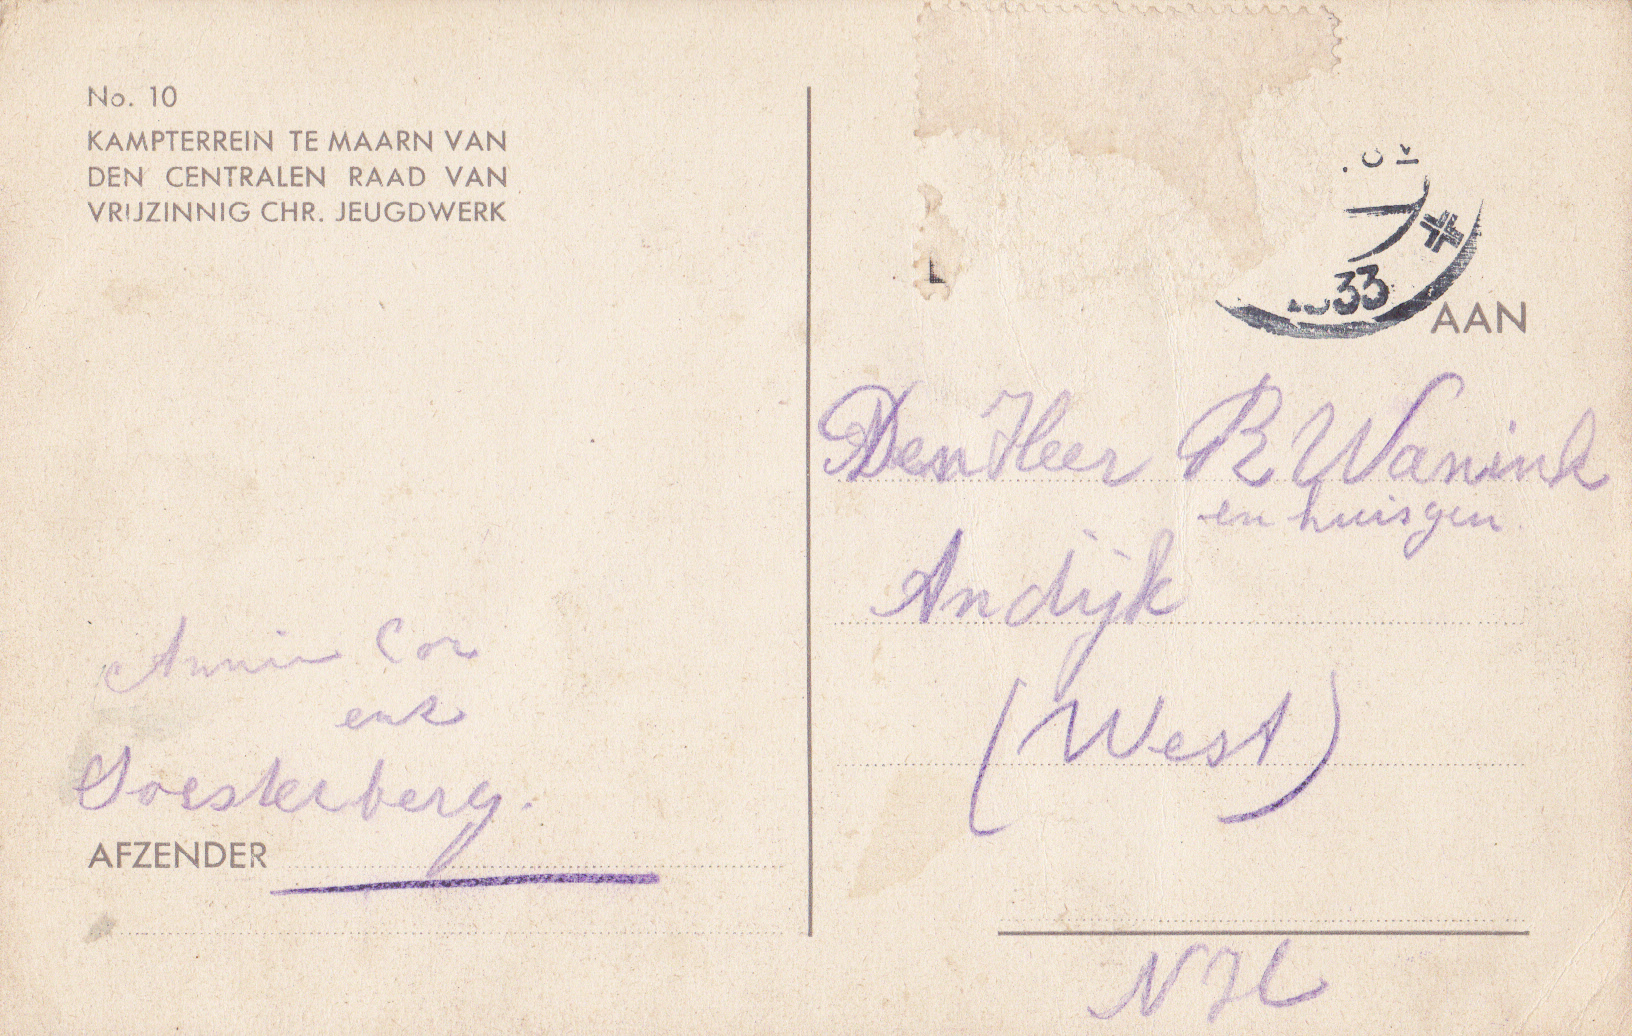 No. 10
KAMPTERREIN TE MAARN VAN
DEN CENTRALEN RAAD VAN
VRIJZINNIG CHR. JEUGDWERK
33
AAN
Den Heer R Wanink
en huisgen
Andijk
(West)
N H
Annie Cor
enz
Soesterberg.
AFZENDER